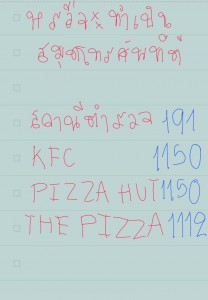 หรือจะทำเป็น
สมุดโทรศัพท์
สถานีตำรวจ 191
KFC 1150
PIZZA HUT 1150
THE PIZZA 1112